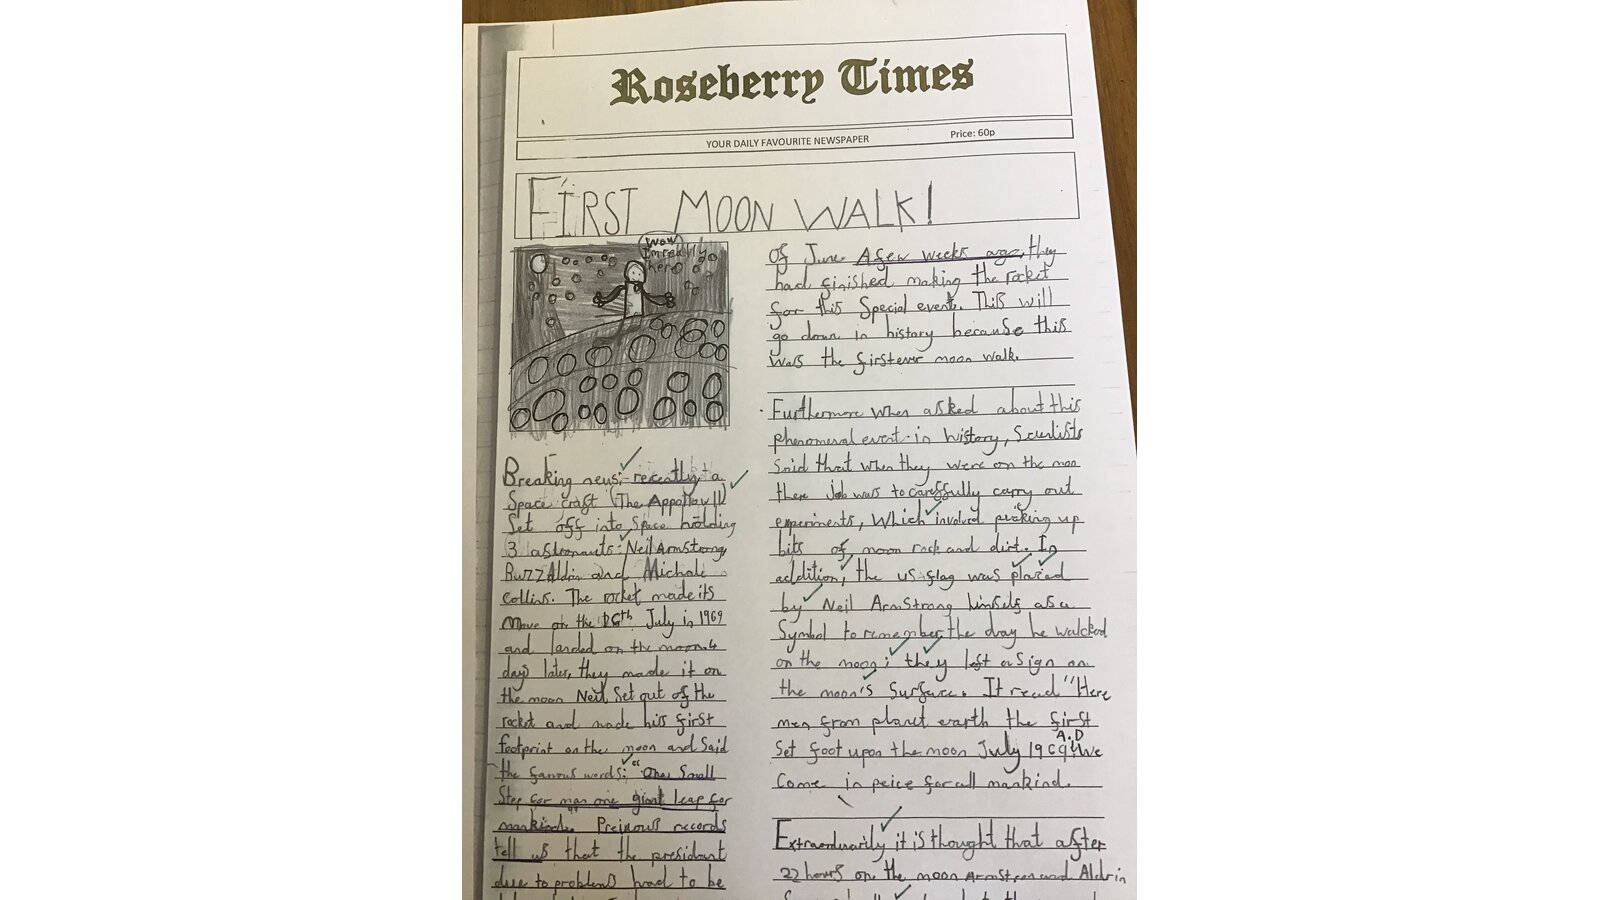 Roseberry Times
YOUR DAILY FAVOURITE NEWSPAPER
Price: 60p
FIRST MOON WALK!
Wow
I'm really
here
Breaking news; recently, a
Space craft (The Appollow 11)
Set off into Space holding
3 astronauts: Neil Armstrong,
Buzz Aldrin and Michale
collins. The rocket made its
Move on the 16th July in 1969
and landed on the moon 4
days later, they made it on
the moon Neil Set out of the
rocket and made his first
footprint on the moon and Said
the famous words; "One Small
Step for man one giant leap for
mankind." Preinous records
tell us that the presidant
due to problems had to be
of June. A few weeks ago, they
had finished making the rocket
for this Special event. This will
go down in history because this
was the first ever moon walk.
Furthermore when asked about this
phenomeral event in history, Scientists
Said that when they were on the moo
there Job was to carefully carry out
experiments, Which involved picking up
bits of moon rock and dirt. In
addition, the us flag was placed
by Neil Armstrong himself as a
Symbol to remember the day he walcked
on the moon; they left a Sign on
the moon's Surface. It read "Here
men from planet earth the first
Set foot upon the moon July 1969 A.D We
Come in peice for all mankind.
Extraordinarily it is thought that after
22 hours on the moon and Aldrin